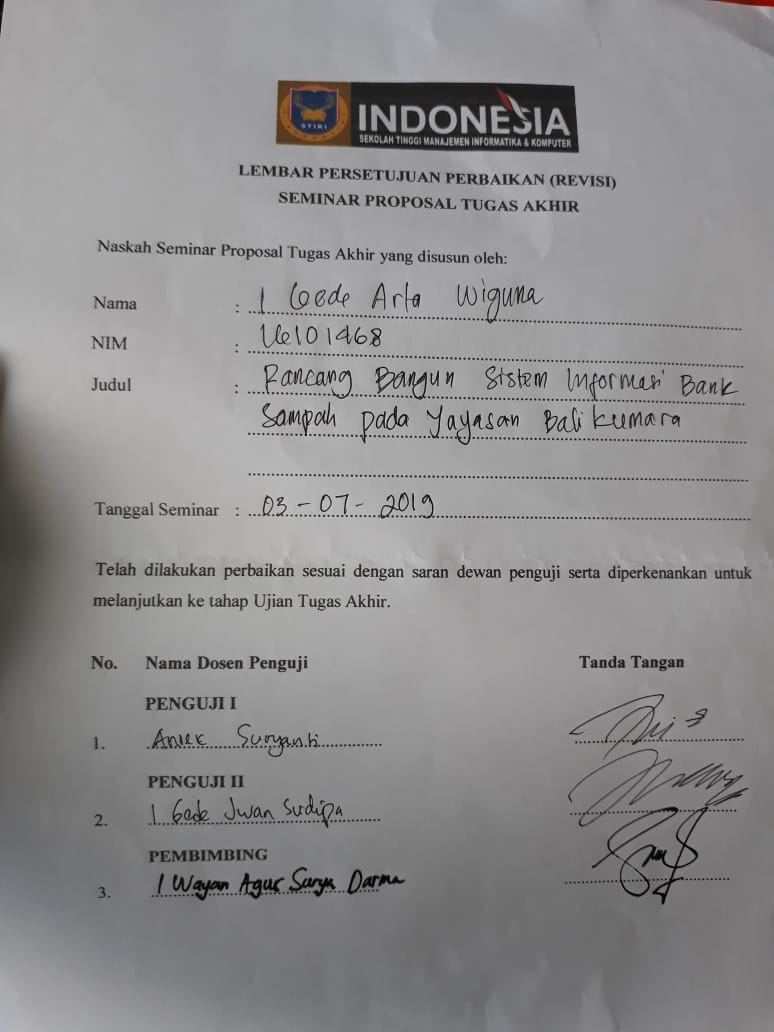 STIKI
INDONESIA
SEKOLAH TINGGI MANAJEMEN INFORMATIKA & KOMPUTER
LEMBAR PERSETUJUAN PERBAIKAN (REVISI)
SEMINAR PROPOSAL TUGAS AKHIR
Naskah Seminar Proposal Tugas Akhir yang disusun oleh:
Nama : I Gede Arta Wiguna
NIM : 16101468
Judul : Rancang Bangun Sistem Informasi Bank
Sampah pada Yayasan Bali Kumara
Tanggal Seminar : 03-07-2019
Telah dilakukan perbaikan sesuai dengan saran dewan penguji serta diperkenankan untuk
melanjutkan ke tahap Ujian Tugas Akhir.
No. Nama Dosen Penguji Tanda Tangan
PENGUJI I
1. Aniek Suryanti
PENGUJI II
2. I Gede Iwan Sudipa
PEMBIMBING
3. I Wayan Agus Surya Darma